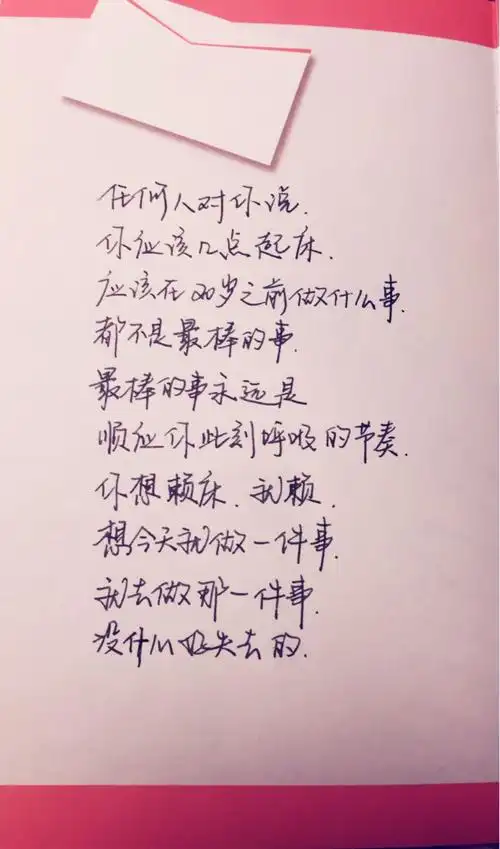 任何人对你说.
你应该几点起床.
应该在30岁之前做什么事.
都不是最棒的事.
最棒的事永远是
顺应你此刻呼吸的节奏.
你想赖床.就赖.
想今天就做一件事.
就去做那一件事.
没什么好失去的.